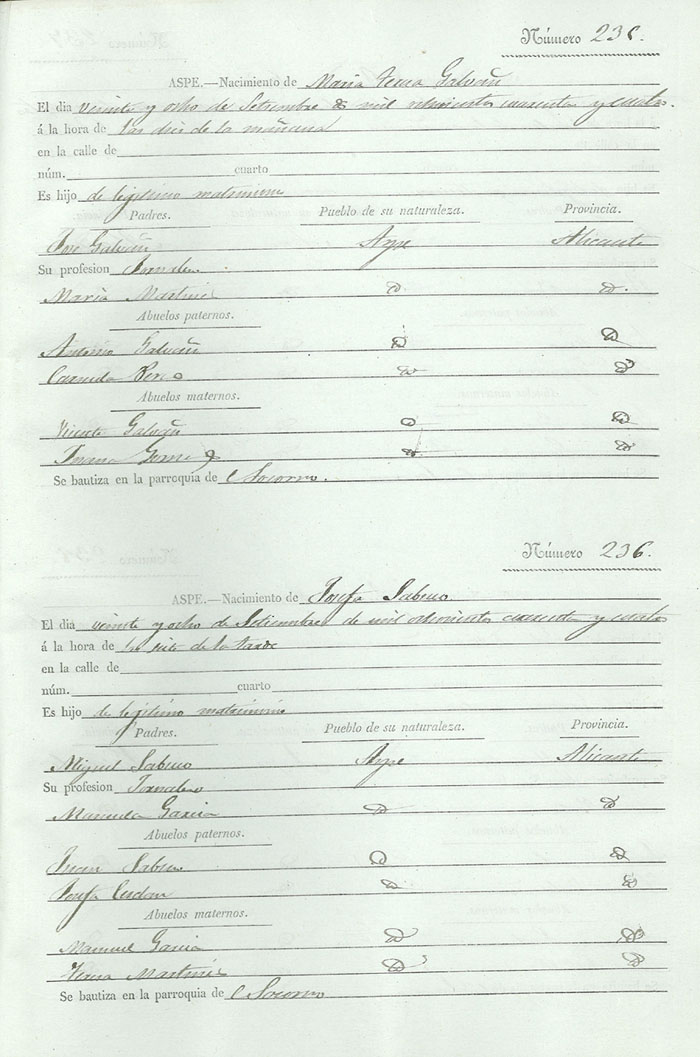 Número 235.
ASPE.—Nacimiento de María Teresa Galvañ
El dia veinte y ocho de Setiembre de mil ochocientos cuarenta y cuatro.
á la hora de las diez de la mañana
en la calle de
núm. cuarto
Es hijo de legítimo matrimonio
Padres. Pueblo de su naturaleza. Provincia.
José Galvañ Aspe Alicante
Su profesion Jornalero
María Martinez D D.
Abuelos paternos.
Antonio Galvañ D D
D D
Abuelos maternos.
Vicente Galvañ D D
Juana Gomez D D
Se bautiza en la parroquia de Socorro.
Número 236.
ASPE.—Nacimiento de Josefa Sabuco.
El dia veinte y ocho de Setiembre de mil ochocientos cuarenta y cuatro
á la hora de las siete de la tarde
en la calle de
núm. cuarto
Es hijo de legítimo matrimonio
Padres. Pueblo de su naturaleza. Provincia.
Miguel Sabuco Aspe Alicante
Su profesion Jornalero
Manuela Garcia D D
Abuelos paternos.
Juan Sabuco D D
Josefa Cerdan D D
Abuelos maternos.
Manuel Garcia D D
Teresa Martinez D D
Se bautiza en la parroquia de Socorro